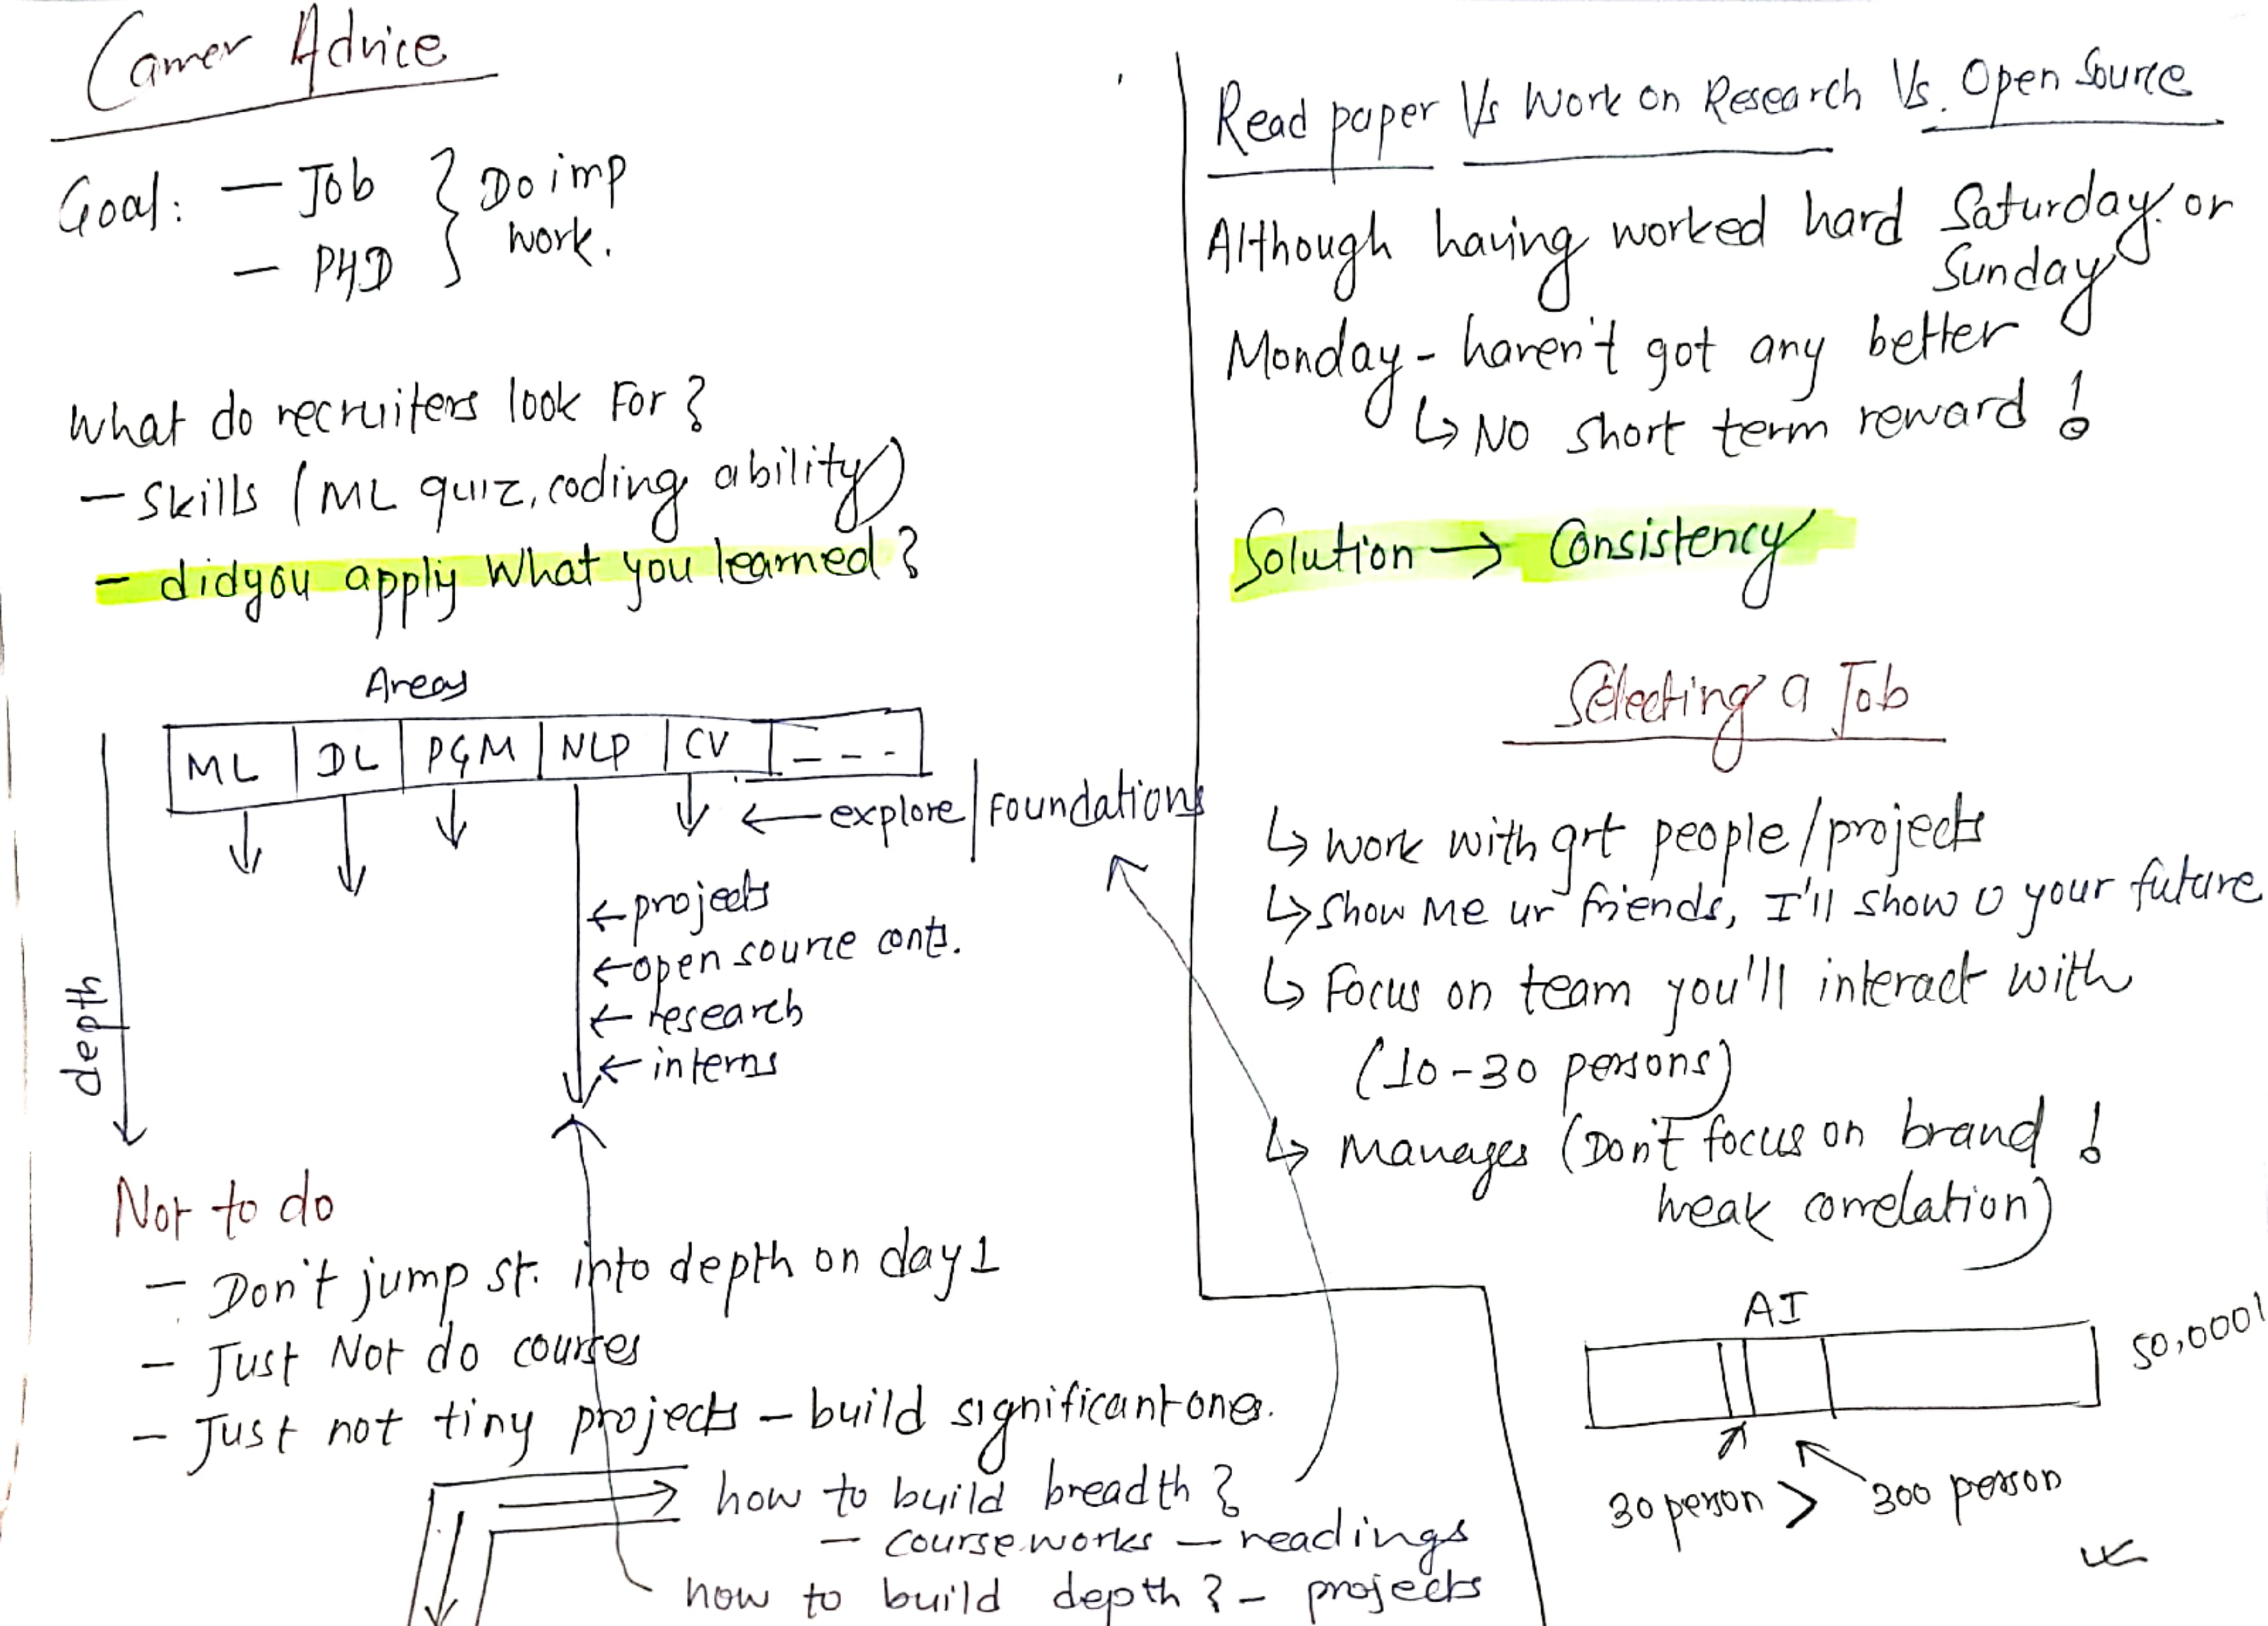 Career Advice
Goal: — Job } Do imp
— PHD } work.
What do recruiters look For?
— Skills (ML quiz, coding ability)
— did you apply What you learned?
Areas
ML | DL | PGM | NLP | CV | - - -
← explore | Foundations
← projects
← open source cont.
← research
← interns
depth
Not to do
— Don't jump st. into depth on day 1
— Just Not do courses
— Just not tiny projects — build significant ones.
how to build breadth?
— course works — readings
how to build depth? — projects
Read paper Vs Work on Research Vs. Open Source
Although having worked hard Saturday or
Sunday
Monday - haven't got any better
↳ No short term reward!
Solution → Consistency
Selecting a Job
↳ work with grt people/projects
↳ Show me ur friends, I'll show U your future
↳ Focus on team you'll interact with
(10-30 persons)
↳ Manages (Don't focus on brand!
weak correlation)
AI
50,000
30 person > 300 person